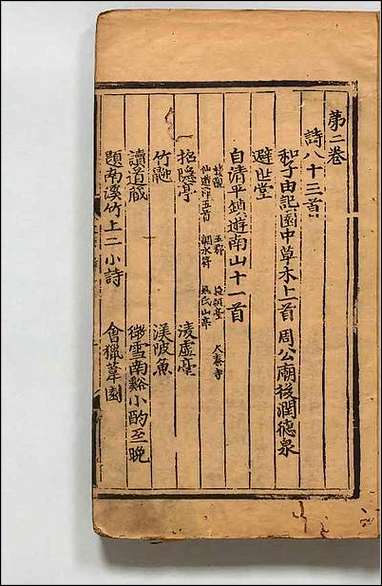 第二卷
詩八十三首
和子由記園中草木上首 周公廟後潤德泉
避世堂
自清平鎮遊南山十一首
樓觀 五郡 授經臺 大秦寺
仙遊潭五首 調水符 馬氏山亭
招隱亭 凌虛臺
竹𪕭 渼陂魚
讀道藏 微雪南谿小酌至晚
題南溪竹上二小詩 會獵葦園